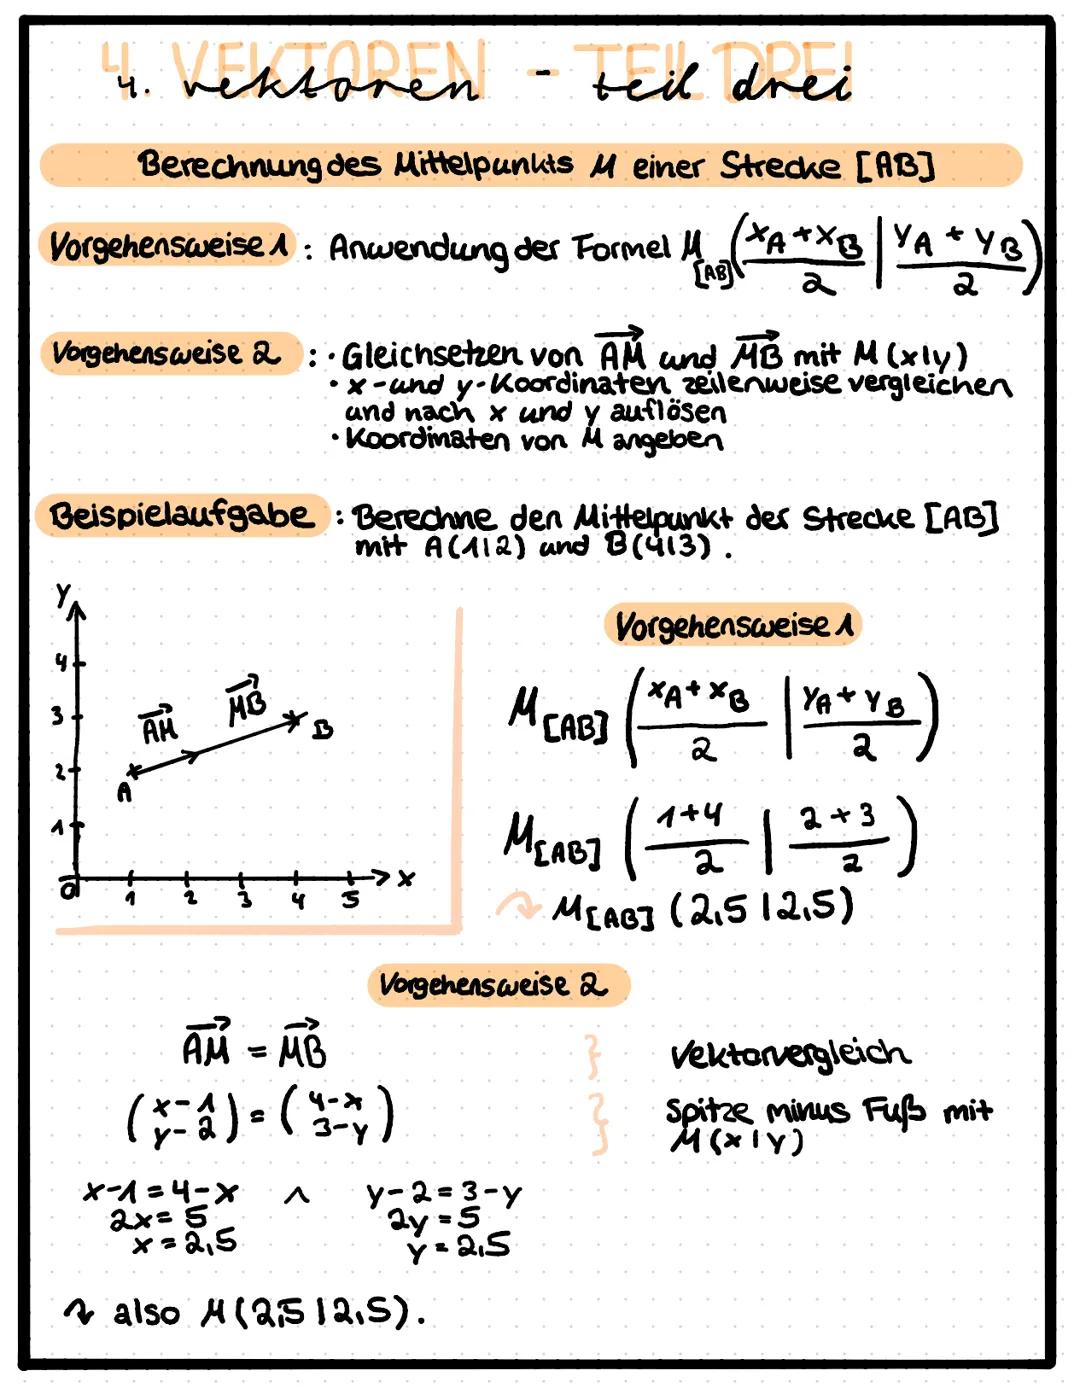 4. VEKTOREN - TEIL DREI
4. vektoren - teil drei
Berechnung des Mittelpunkts M einer Strecke [AB]
Vorgehensweise 1 : Anwendung der Formel M[AB] (xA + xB / 2 | yA + yB / 2)
Vorgehensweise 2 : · Gleichsetzen von AM und MB mit M (x|y)
· x- und y-Koordinaten zeilenweise vergleichen
und nach x und y auflösen
· Koordinaten von M angeben
Beispielaufgabe : Berechne den Mittelpunkt der Strecke [AB]
mit A(1|2) und B(4|3).
y
4
3
2
1
0
1 2 3 4 5
x
AM
MB
A
B
Vorgehensweise 1
M[AB] (xA + xB / 2 | yA + yB / 2)
M[AB] (1+4 / 2 | 2+3 / 2)
↷ M[AB] (2,5 | 2,5)
Vorgehensweise 2
AM = MB } Vektorvergleich
(x-1 y-2) = (4-x 3-y) } Spitze minus Fuß mit
M(x|y)
x-1 = 4-x ∧ y-2 = 3-y
2x = 5 2y = 5
x = 2,5 y = 2,5
↷ also M(2,5 | 2,5).